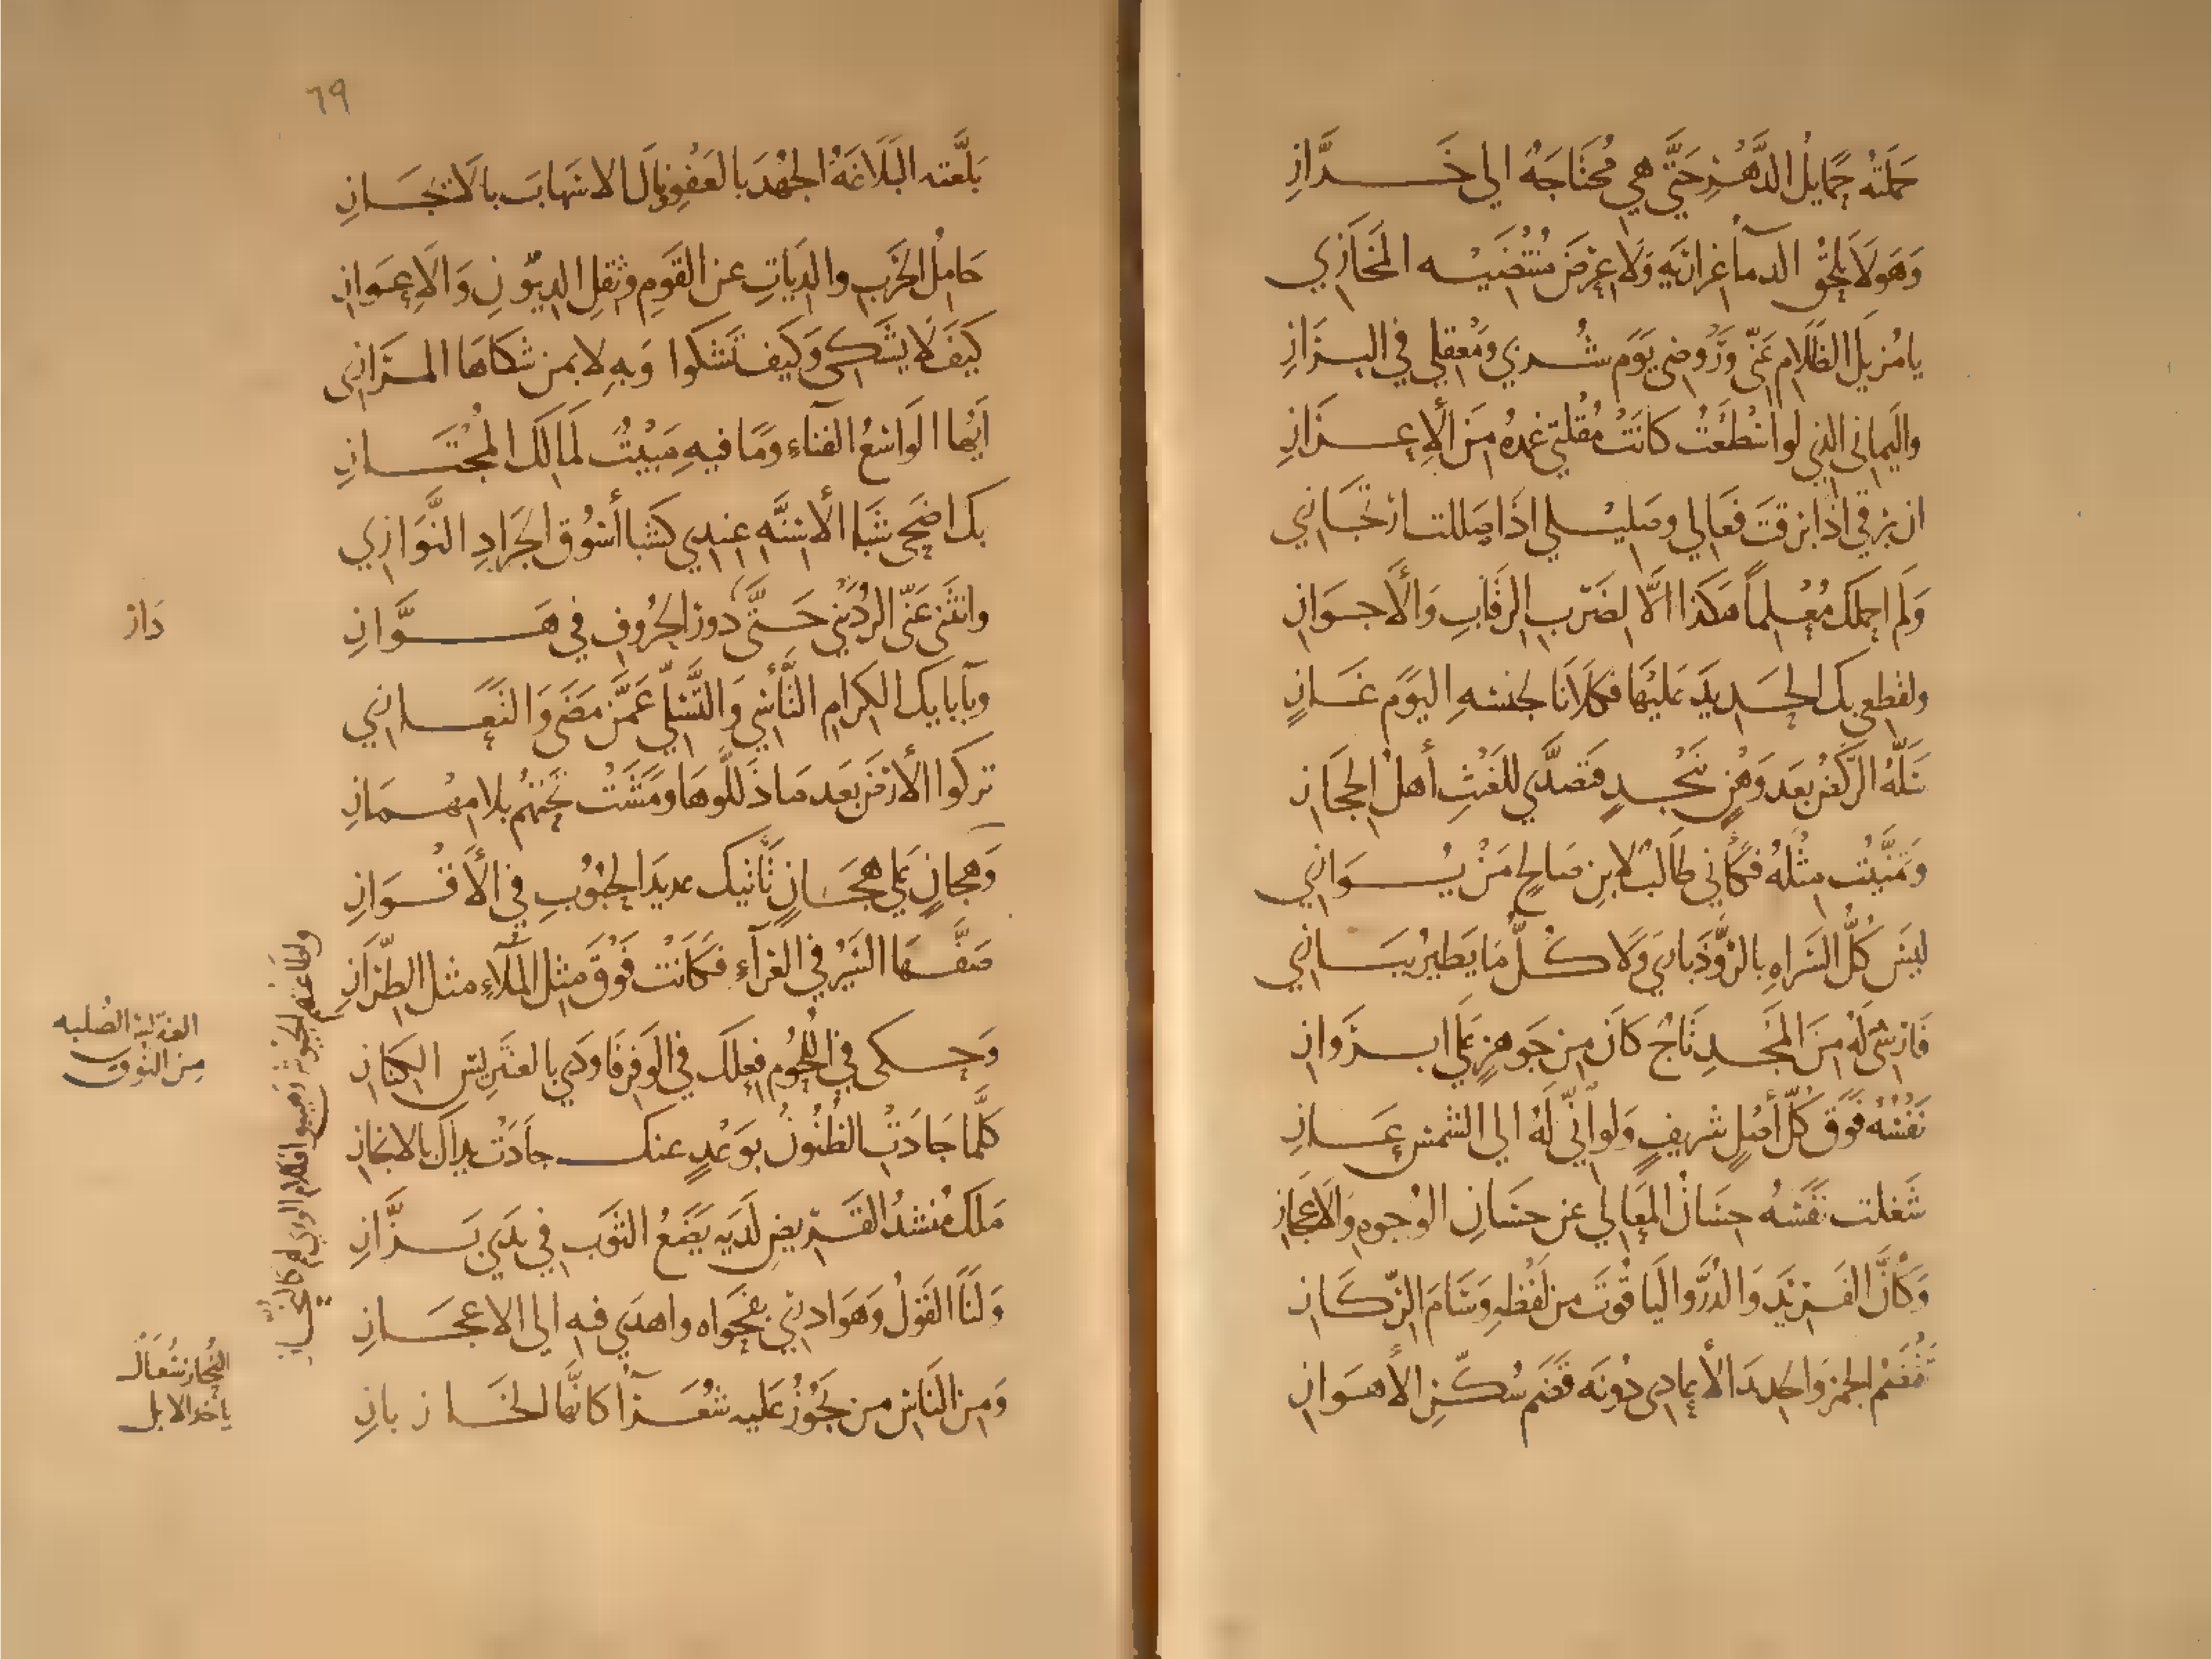 حَمَلَتْهُ حَمَايلُ الدَّهْرِ حَتَّى هي مُحْتَاجَةٌ الي خَــرَّازِ
وَهوَ لَا تَلحَقُ الدمآءُ غِرَارَيهِ وَلَا عِرْضَ مُنْتَضَيْـه المَخَازِي
يا مُزيلَ الظَّلَامِ عَنّي وَرَوْضِي يَوْمَ شُـربي ومَعْقِلي في البـرَازِ
واليماني الذي لو اسْطَعْتُ كانَتْ مُقْلَتي غِمدَهُ مِنَ الأعِـزَازِ
ان بَرقي اذا بَرقتَ فَعَالي وصَليـلي اذَا صَللت ارتجَـازي
وَلَم احملكَ مُعْلماً هَكذا الَّا لضَرْبِ الرقابِ وَالأَجـوازِ
ولقطعي بكَ الحَـديدَ عَلَيْها فكلَانا لجنسهِ اليَوْمَ غَـازٍ
سَلَّهُ الرَّكْضُ بعَد وَهْنٍ بنَجْـدٍ فتَصدَّى للغَيْثِ أهلُ الحجَازِ
وَتمَنَّيْتُ مِثْلَهُ فكأنّي طَالبٌ لابنِ صَالحٍ مَنْ يُـوَازي
ليَس كُلُّ السَّراةِ بالرُّوذَبارِيِّ وَلَا كـلُّ مَا يَطيرُ بِبَـازي
فَارِسيٌّ لَهُ مِنَ المَجـدِ تَاجٌ كانَ مِن جَوهرٍ عَلَى ابـروازِ
نَفْسُهُ فَوْقَ كُلِّ أصْلٍ شريفٍ وَلو انّي لَهُ الى الشمسِ عَـازِ
شَغلت نَفْسَهُ حِسَانُ المَعَالي عن حِسَانِ الوُجوهِ والاعجازِ
وَكأنَّ الفَـريْدَ وَالدُّرَّ واليَاقُوتَ من لفظهِ وَسَامَ الرِّكَـازِ
تَقْضَمُ الجمرَ وَالحديدَ الأعَادي دُونَه قَضْمَ سُكَّرِ الأهـوازِ
٦٩
بَلَّغتهُ البَلَاغَةُ الجُهْدَ بالعَفْوِ ونَالَ الاسْهابَ بالايجَـازِ
حَاملُ الحَرْبِ والدِيَاتِ عن القَوْمِ وثقلِ الديُونِ وَالأعـوازِ
كيفَ لَا يشتكى وَكيفَ تَشكوا وَبهِ لا بمن شكاهَا المـرَازي
أيّها الوَاسعُ الفناءِ ومَا فيهِ مَبِيْتٌ لِمَالكَ المُجْتَـازِ
بكَ اضحى شَبَا الأسنَّهِ عِندي كشَبا أسْوُقِ الجَرَادِ النَّوازي
وانثنَى عَنّي الرُدَيْنيُّ حَـتّى دارَ دوز الحُروفِ في هَـوَّازِ
وبآبَايكَ الكِرَامِ التَّأسِّي وَالتَّسَلّي عَمَّن مَضَى وَالتَعَـازي
تركوا الأرْضَ بَعدَ مَا ذَلَّلوهَا وَمَشَتْ تَحْتَهُم بلا مِهْـمَازِ
وَهجانٍ عَلي هجَـانٍ تَأتيكَ عديدَ الحُبُوبِ في الأقْـوازِ
صَفَّها السَّيْرُ في العَرآءِ فكانَتْ فَوْقَ مِثلِ المُلآءِ مثلَ الطِّرازِ
وَحـكى في اللُحُومِ فِعلَكَ في الوَفرِ فَاودَى بالعَنْتَريسِ الكنَازِ
كلَّما جَادَتِ الظُنُونُ بوَعْدٍ عنكـ جَادَتْ يدَاكَ بالانجَازِ
مَلكٌ مُنشدُ القـريضِ لَدَيهِ يَضَعُ الثَوْبَ في يَدَي بَـزَّازِ
وَلَنَا القَوْلُ وَهوَ ادري بفَحْوَاه واهدَى فيه الى الاعجَـازِ
وَمنَ النَاسِ من يَجُوزُ عَليهِ شُعَـرآءٌ كانّها الخَـازِ بازِ
العنتريس الصُلبه
من النُوق
النُحاز سُعَال
ياخذ الابل